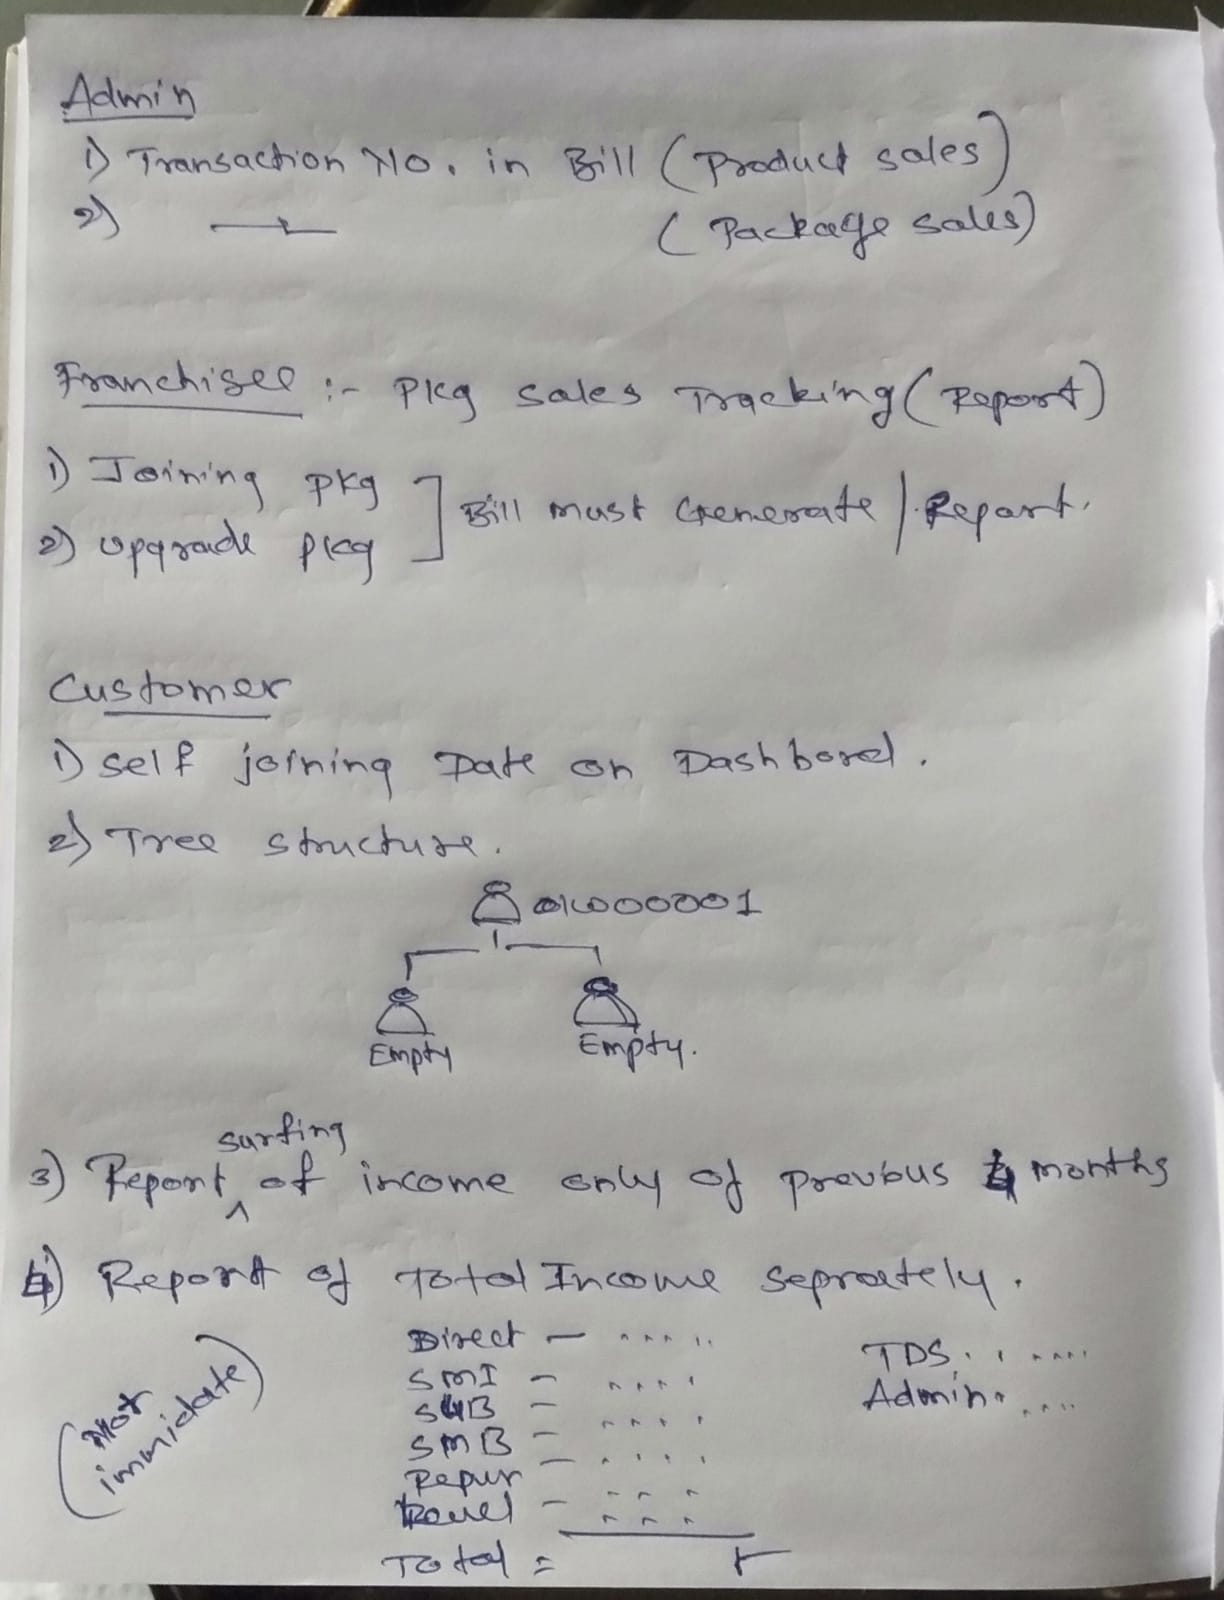 Admin
1) Transaction No. in Bill (Product sales)
2) —"— (Package sales)
Franchisee :- Pkg sales Tracking (Report)
1) Joining pkg
2) upgrade pkg ] Bill must Generate / Report.
Customer
1) self joining Date on Dashbord.
2) Tree structure.
000001
Empty Empty.
surfing
3) Report ^ of income only of previous months
4) Report of Total Income seprately.
(Not immidate)
Direct - .....
SMI - ....
- ....
SMB - ....
Repur - ...
- ...
Total =
TDS. . .....
Admin. ....